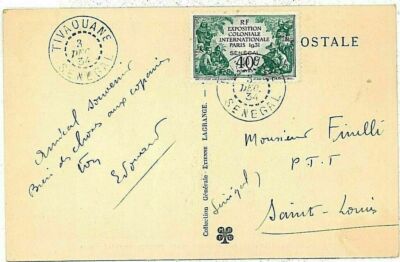 TIVAOUANE
3
DEC
34
SENEGAL
RF
EXPOSITION
COLONIALE
INTERNATIONALE
PARIS 1931
SENEGAL
40c
POSTALE
3
DEC
34
SENEGAL
Amical souvenir
Bien des choses aux copains
Ton
Edouard
Collection Générale - Etienne LAGRANGE.
Monsieur Finelli
P.T.T
(Sénégal)
Saint-Louis